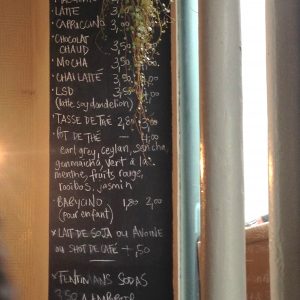 LATTE 3,50
CAPPUCCINO 3,50
CHOCOLAT
CHAUD 3,50
MOCHA 3,50
CHAI LATTÉ 3,50 4,00
LSD 3,50 4,00
(latte soy dandelion)
TASSE DE THÉ 2,80
POT DE THÉ — 4,00
earl grey, ceylan, sencha,
genmaicha, vert à la
menthe, fruits rouge,
rooibos, jasmin
BABYCINO 1,80 2,00
(pour enfant)
* LAIT DE SOJA OU AVOINE
OU SHOT DE CAFÉ + ,50
* FENTIMANS SODAS
3,50